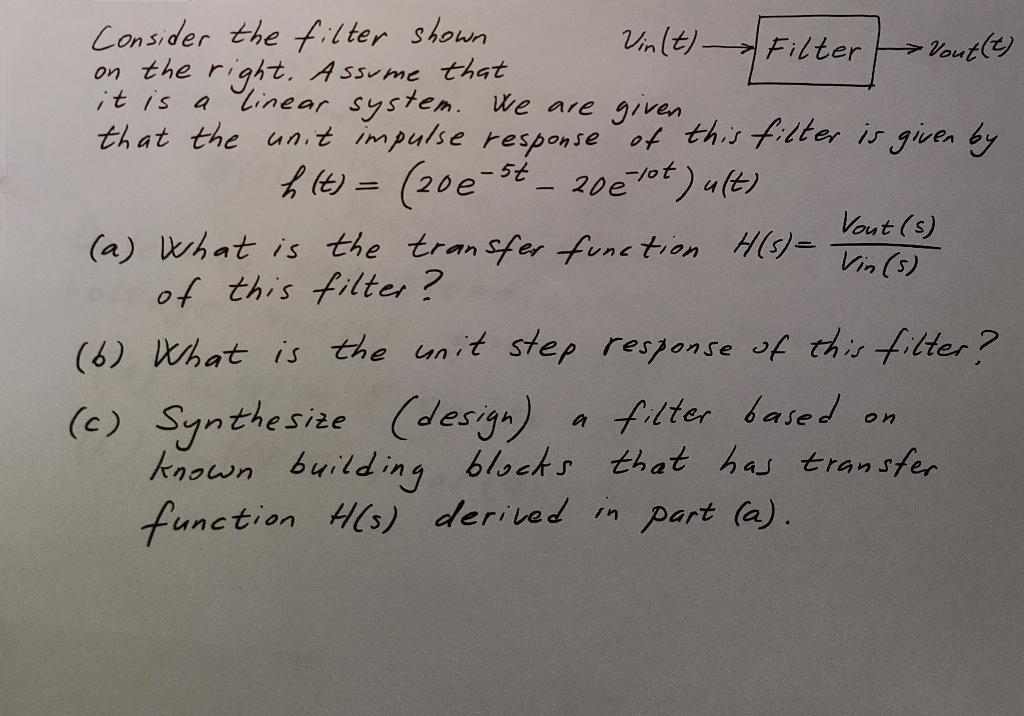 Consider the filter shown Vin(t) → Filter → vout(t)
on the right. Assume that
it is a linear system. We are given
that the unit impulse response of this filter is given by
h(t) = (20e^{-5t} - 20e^{-10t}) u(t)
(a) What is the transfer function H(s) = Vout(s) / Vin(s)
of this filter?
(b) What is the unit step response of this filter?
(c) Synthesize (design) a filter based on
known building blocks that has transfer
function H(s) derived in part (a).